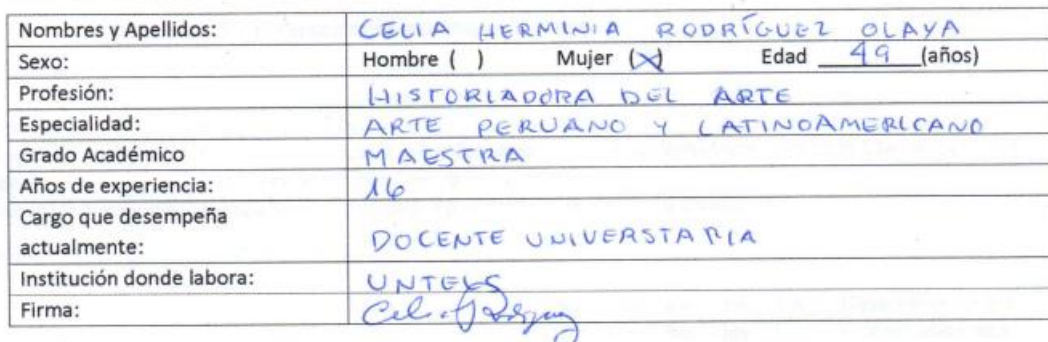 Nombres y Apellidos: CELIA HERMINIA RODRÍGUEZ OLAYA
Sexo: Hombre ( ) Mujer (X) Edad 49 (años)
Profesión: HISTORIADORA DEL ARTE
Especialidad: ARTE PERUANO Y LATINOAMERICANO
Grado Académico MAESTRA
Años de experiencia: 16
Cargo que desempeña
actualmente: DOCENTE UNIVERSTARIA
Institución donde labora: UNTELS
Firma: